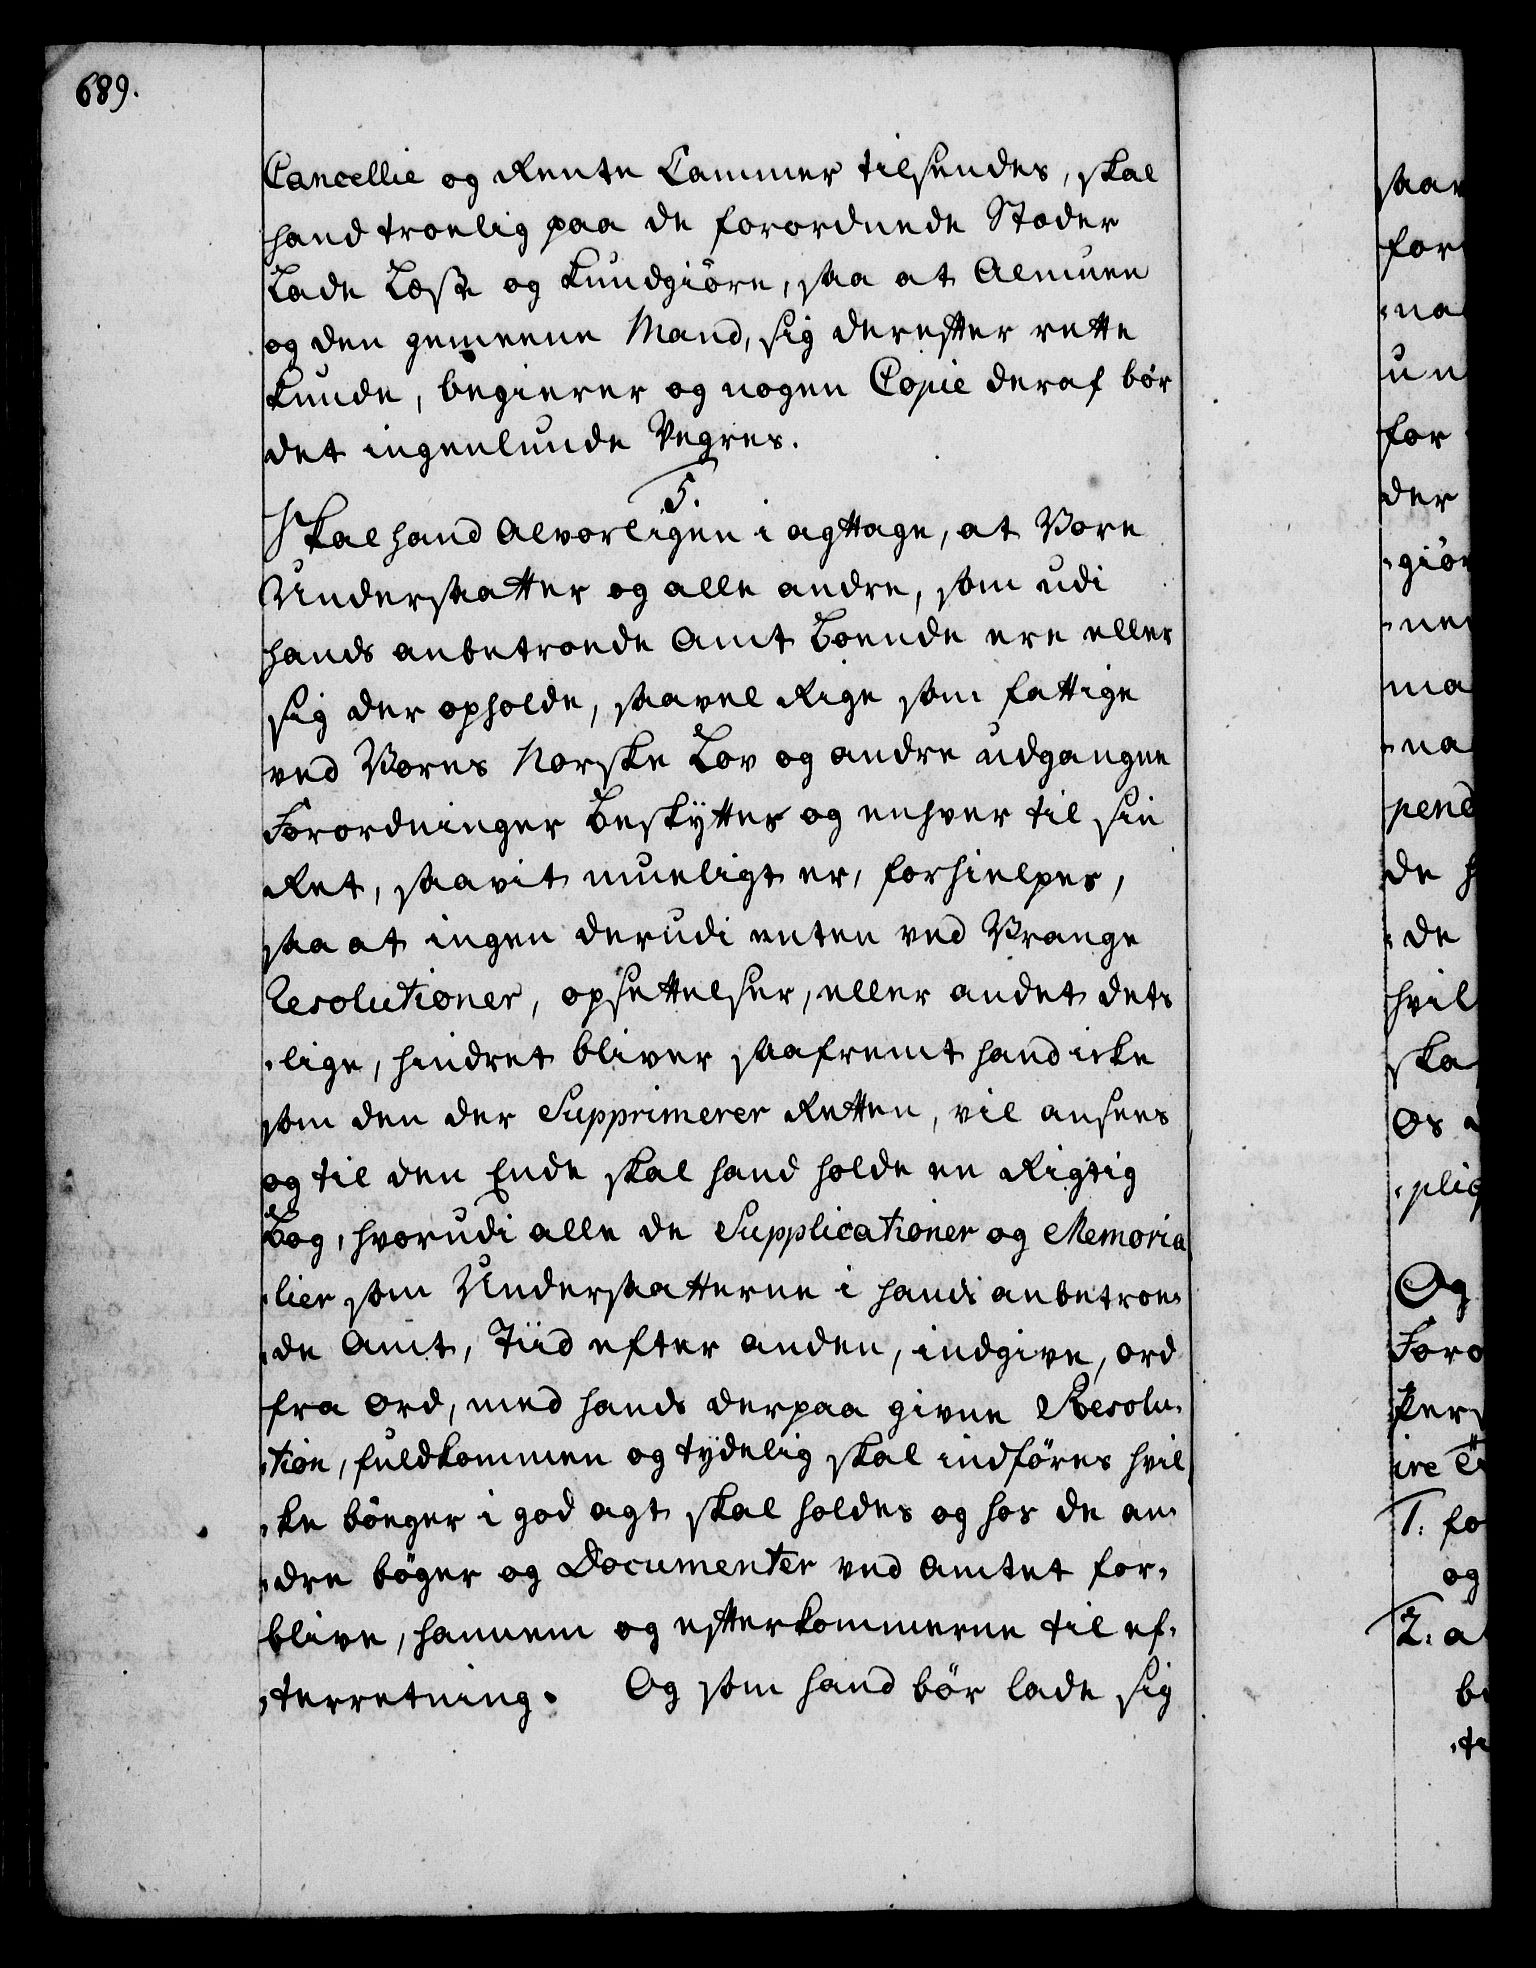 689.
Cancellie og Rente Cammer tilsendes, skal
hand troelig paa de forordnede Stæder
Lade Læse og Kundgiöre, saa at Almuen
og den gemeene Mand, sig derefter rette
Kunde, begierer og nogen Copie deraf bör
det ingenlunde Vegres.
5.
Skal hand Alvorligen i agttage, at Vore
Undersaatter og alle andre, som udi
hands anbetroede Amt Boende ere eller
sig der opholde, saavel Rige som fattige
ved Vores Norske Lov og andre udgangne
Forordninger Beskyttes og enhver til sin
Ret, saavit mueligt er, forhielpes,
saa at ingen derudi enten ved Vrange
Resolutioner, opsettelser, eller andet dets
lige, hindret bliver saafremt hand icke
som den der Supprimerer Retten, vil ansees
og til den Ende skal hand holde en Rigtig
Bog, hvorudi alle de Supplicationer og Memoria
lier som Undersaatterne i hands anbetroe-
de Amt, Tiid efter anden, indgive, ord
fra Ord, med hands derpaa givne Resolu-
tion, fuldkommen og tydelig skal indföres hvil
ke böeger i god agt skal holdes og hos de an-
dre böger og Documenter ved Amtet for-
blive, hannem og efterkommerne til ef-
terretning. Og som hand bör lade sig